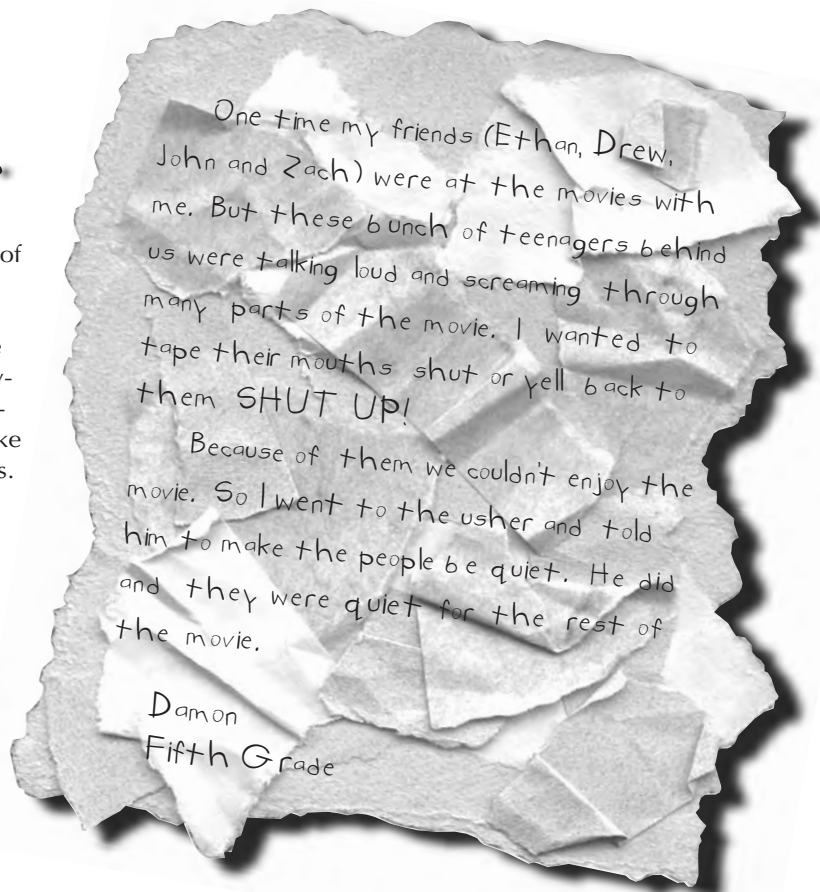 of
s.
One time my friends (Ethan, Drew,
John and Zach) were at the movies with
me. But these bunch of teenagers behind
us were talking loud and screaming through
many parts of the movie. I wanted to
tape their mouths shut or yell back to
them SHUT UP!
Because of them we couldn't enjoy the
movie. So I went to the usher and told
him to make the people be quiet. He did
and they were quiet for the rest of
the movie.
Damon
Fifth Grade